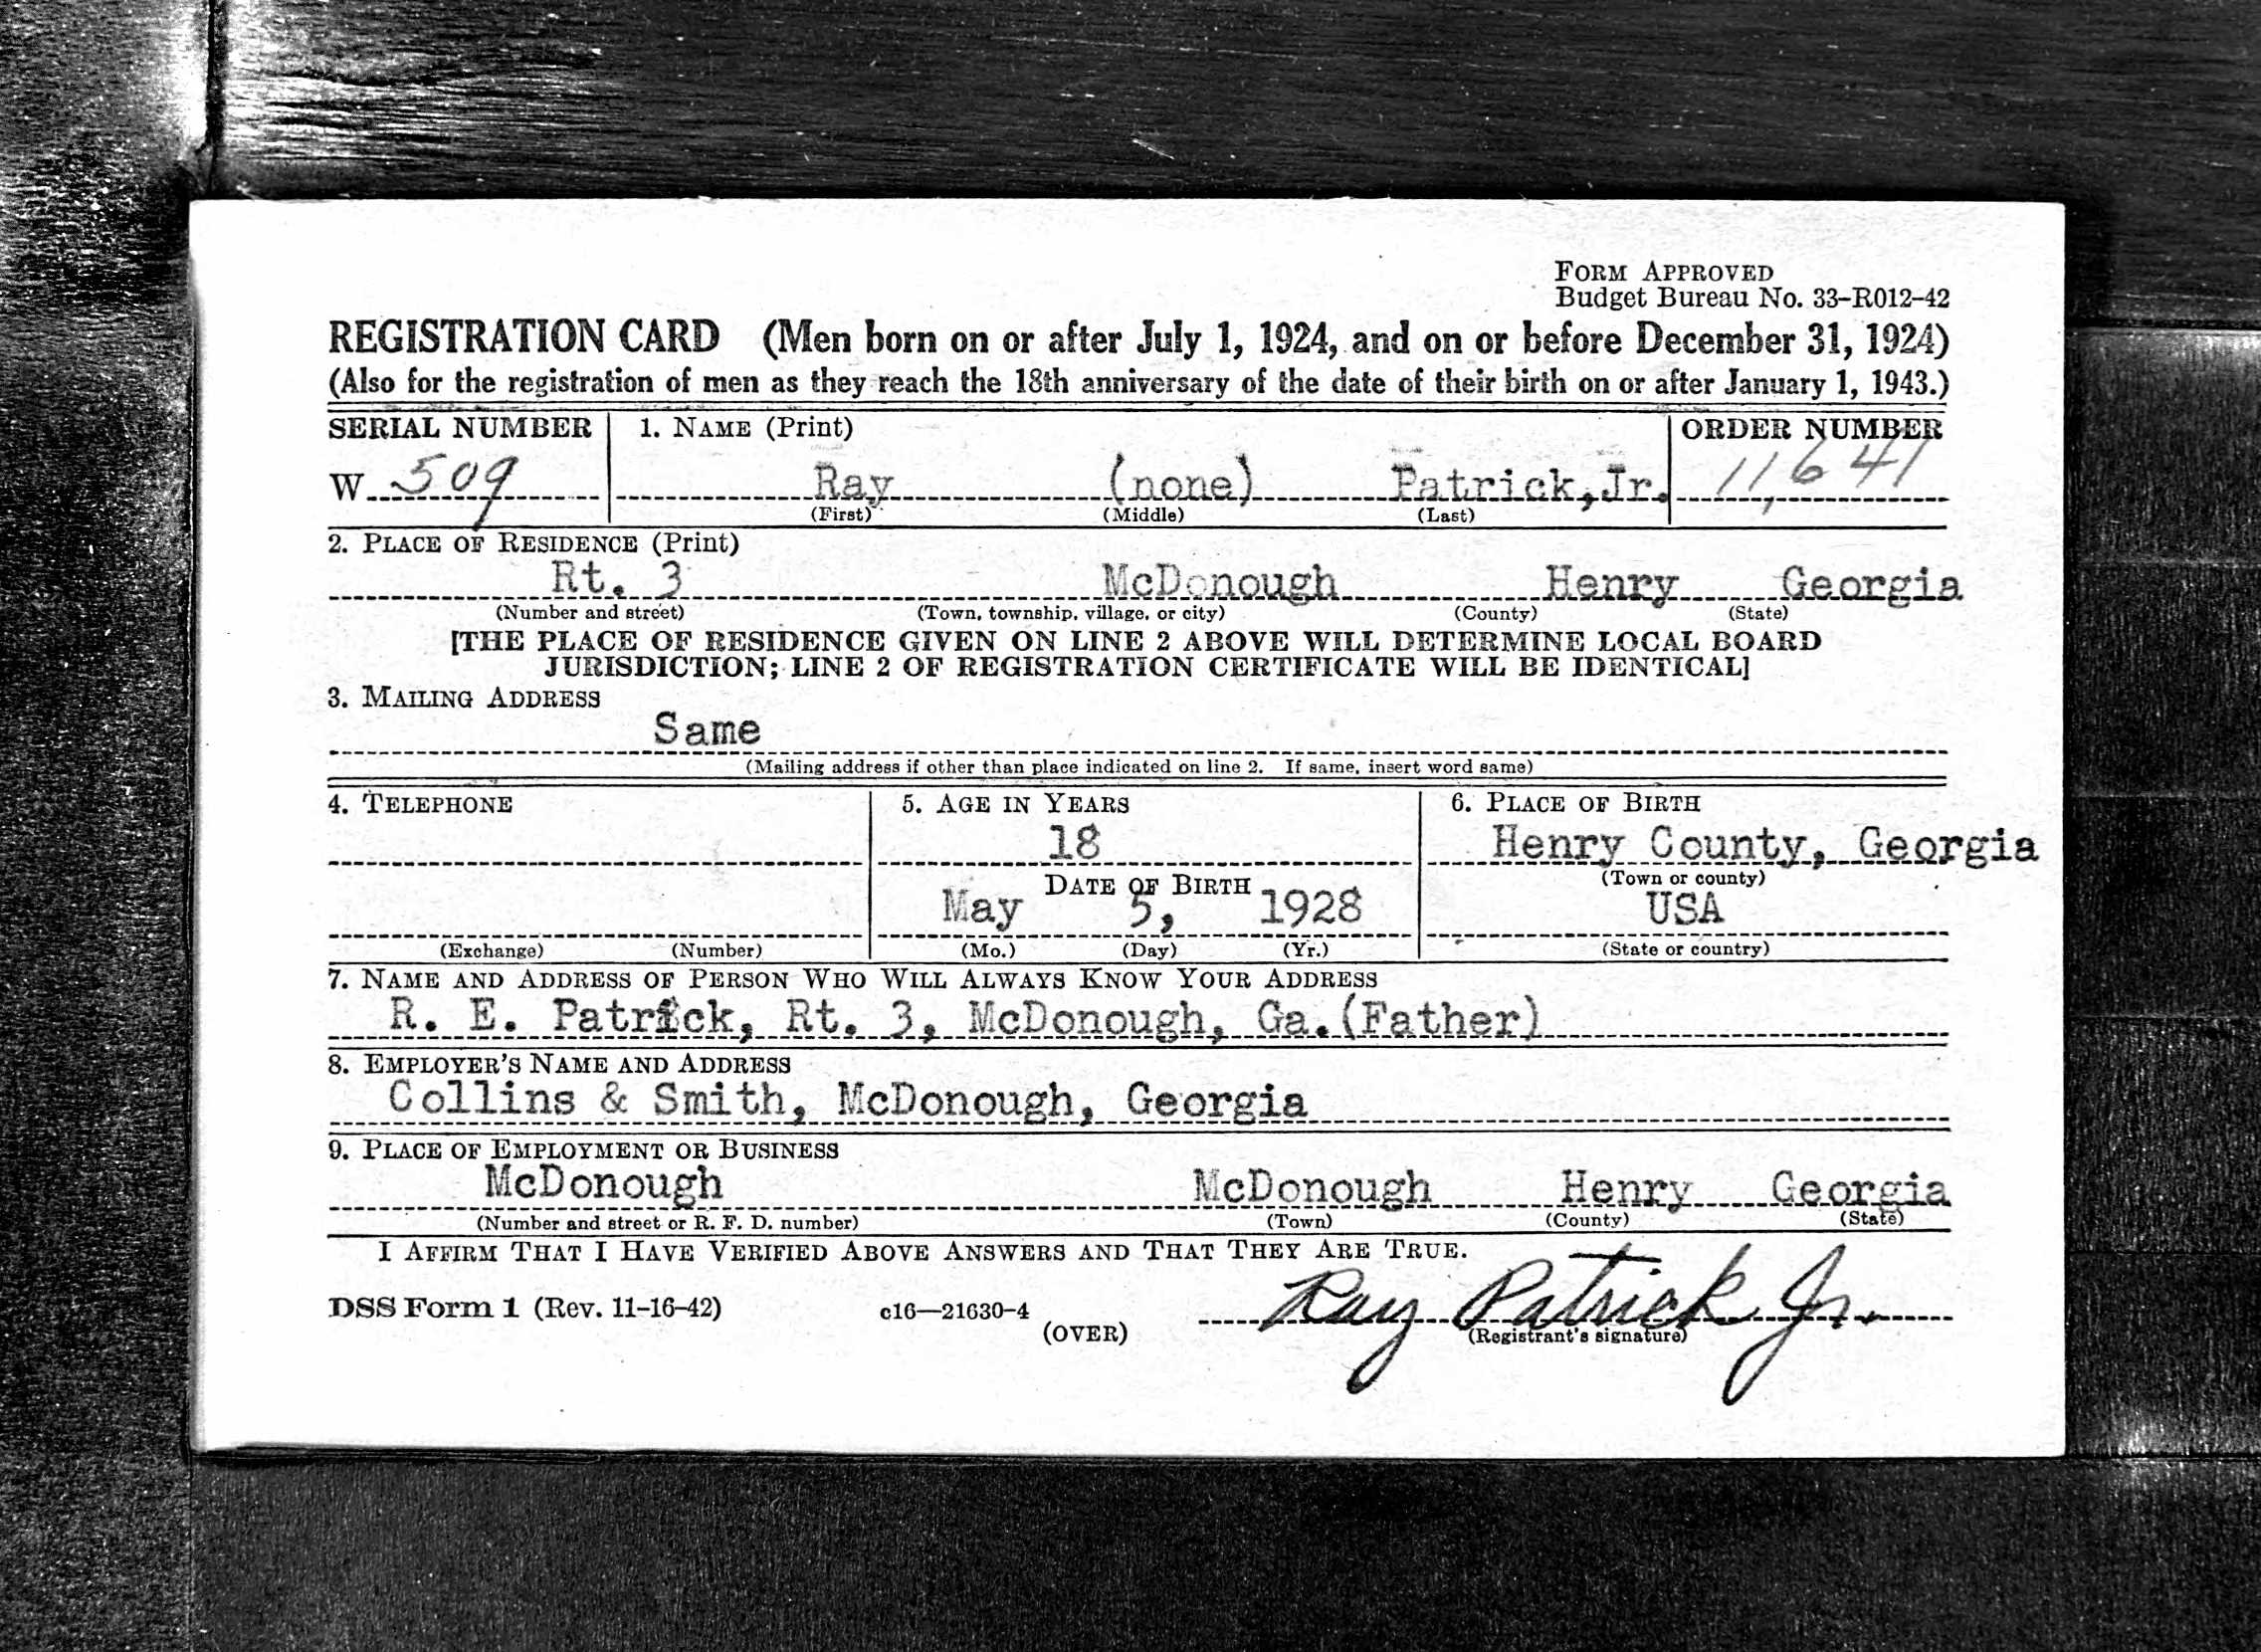 FORM APPROVED
Budget Bureau No. 33-R012-42
REGISTRATION CARD (Men born on or after July 1, 1924, and on or before December 31, 1924)
(Also for the registration of men as they reach the 18th anniversary of the date of their birth on or after January 1, 1943.)
SERIAL NUMBER 1. NAME (Print) ORDER NUMBER
W 509 Ray (none) Patrick,Jr. 11,641
(First) (Middle) (Last)
2. PLACE OF RESIDENCE (Print)
Rt. 3 McDonough Henry Georgia
(Number and street) (Town, township, village, or city) (County) (State)
[THE PLACE OF RESIDENCE GIVEN ON LINE 2 ABOVE WILL DETERMINE LOCAL BOARD
JURISDICTION; LINE 2 OF REGISTRATION CERTIFICATE WILL BE IDENTICAL]
3. MAILING ADDRESS
Same
(Mailing address if other than place indicated on line 2. If same, insert word same)
4. TELEPHONE 5. AGE IN YEARS 6. PLACE OF BIRTH
18 Henry County, Georgia
DATE OF BIRTH (Town or county)
May 5, 1928 USA
(Exchange) (Number) (Mo.) (Day) (Yr.) (State or country)
7. NAME AND ADDRESS OF PERSON WHO WILL ALWAYS KNOW YOUR ADDRESS
R. E. Patrick, Rt. 3, McDonough, Ga.(Father)
8. EMPLOYER'S NAME AND ADDRESS
Collins & Smith, McDonough, Georgia
9. PLACE OF EMPLOYMENT OR BUSINESS
McDonough McDonough Henry Georgia
(Number and street or R. F. D. number) (Town) (County) (State)
I AFFIRM THAT I HAVE VERIFIED ABOVE ANSWERS AND THAT THEY ARE TRUE.
DSS Form 1 (Rev. 11-16-42) c16—21630-4 Ray Patrick Jr.
(OVER) (Registrant's signature)